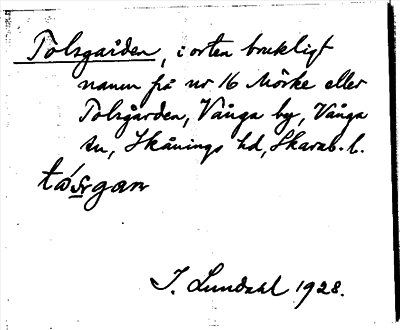 Tolsgården, i orten brukligt
namn på nr 16 Mörke eller
Tolsgården, Vånga by, Vånga
sn, Skånings hd, Skarab. l.
tåsrgan
J. Lundahl 1928.